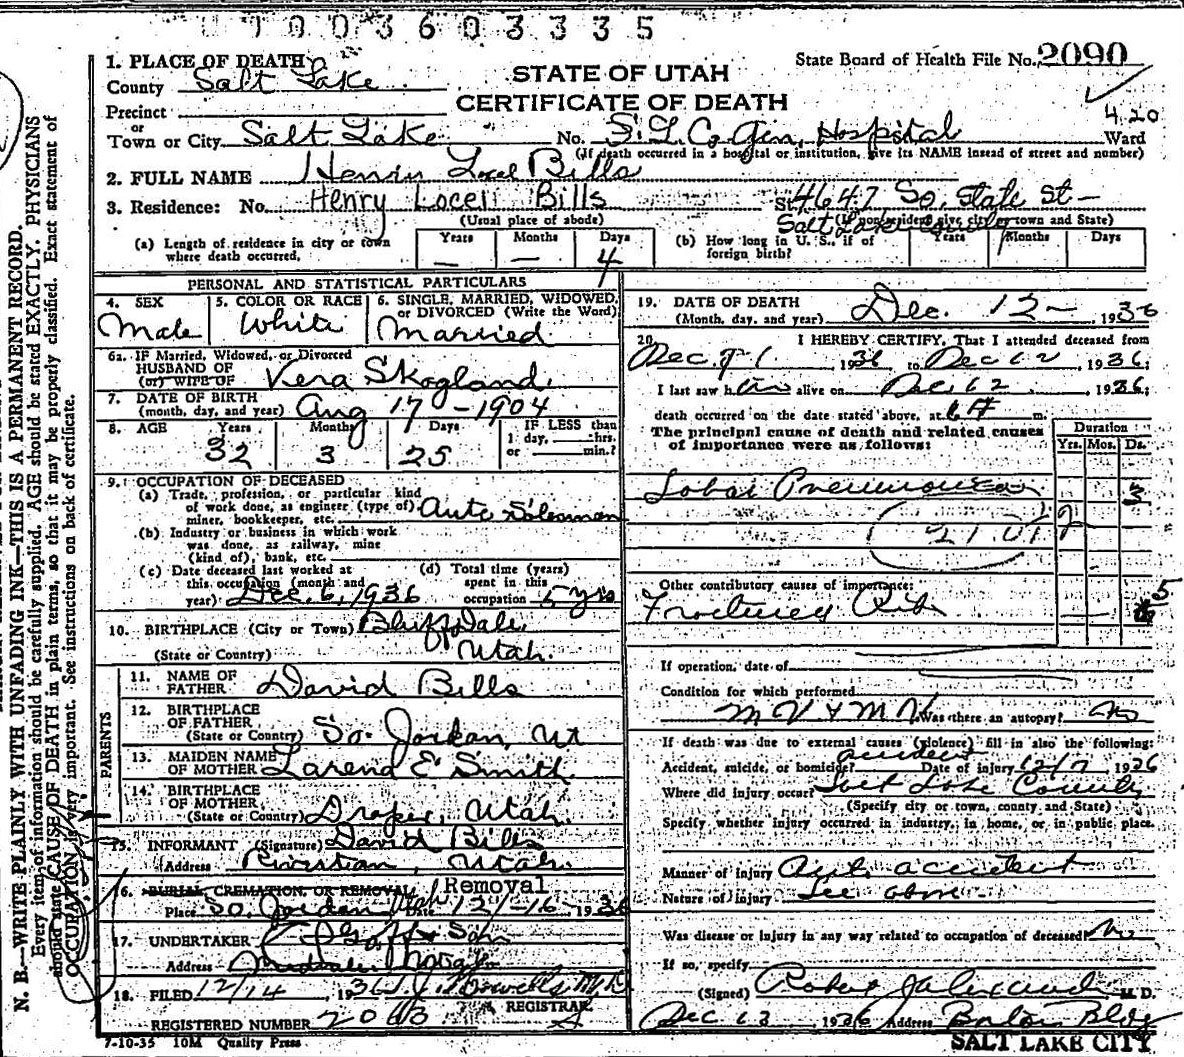 1003603335
1. PLACE OF DEATH
State Board of Health File No. 2090
County Salt Lake
STATE OF UTAH
CERTIFICATE OF DEATH
Precinct
or
Town or City Salt Lake No. S. L. Co. Gen. Hospital St. Ward
420
(If death occurred in a hospital or institution, give its NAME instead of street and number)
2. FULL NAME Bills
3. Residence: No. Henry Locel Bills St. 4647 So. State St-
(Usual place of abode) (If nonresident give city or town and State)
Salt Lake County
(a) Length of residence in city or town where death occurred. Years — Months — Days 4
(b) How long in U. S., if of foreign birth? Years Months Days
PERSONAL AND STATISTICAL PARTICULARS
4. SEX Male
5. COLOR OR RACE White
6. SINGLE, MARRIED, WIDOWED, or DIVORCED (Write the Word) Married
6a. IF Married, Widowed, or Divorced
HUSBAND OF
(or) WIFE OF Vera Skogland
7. DATE OF BIRTH
(month, day, and year) Aug 17 - 1904
8. AGE Years 32 Months 3 Days 25 IF LESS than 1 day, hrs. or min.?
9. OCCUPATION OF DECEASED
(a) Trade, profession, or particular kind
of work done, as engineer (type of)
miner, bookkeeper, etc. Auto Salesman
(b) Industry or business in which work
was done, as railway, mine
(kind of), bank, etc.
(c) Date deceased last worked at
this occupation (month and
year) Dec. 6, 1936
(d) Total time (years)
spent in this
occupation 5 yrs
10. BIRTHPLACE (City or Town) Bluffdale,
(State or Country) Utah.
PARENTS
11. NAME OF
FATHER David Bills
12. BIRTHPLACE
OF FATHER
(State or Country) So. Jordan, Ut
13. MAIDEN NAME
OF MOTHER E Smith
14. BIRTHPLACE
OF MOTHER
(State or Country) Draper, Utah.
15. INFORMANT (Signature) David Bills
Address Riverton, Utah.
16. BURIAL, CREMATION, OR REMOVAL Removal
Place So. Jordan, Utah Date 12/-16-, 1936
17. UNDERTAKER Son
Address
18. FILED 12/14, 1936
REGISTRAR
REGISTERED NUMBER 2063
7-10-35 10M Quality Press
19. DATE OF DEATH
(Month, day, and year) Dec. 12- 1936
20. I HEREBY CERTIFY, That I attended deceased from
1936 to Dec 12 1936;
I last saw him alive on Dec. 12 1936;
death occurred on the date stated above, at m.
The principal cause of death and related causes
of importance were as follows:
Duration
Yrs. Mos. Ds.
Lobar Pneumonia 3
Other contributory causes of importance:
Fractured Ribs 5
If operation, date of
Condition for which performed
M V + M V Was there an autopsy? No
If death was due to external causes (violence) fill in also the following:
Accident, suicide, or homicide? accident Date of injury 12/7 1936
Where did injury occur? Salt Lake County
(Specify city or town, county and State)
Specify whether injury occurred in industry, in home, or in public place.
Manner of injury Aut. accident
Nature of injury See above
Was disease or injury in any way related to occupation of deceased? No
If so, specify
(Signed) Robert Alexander M. D.
Dec 13 1936 Address Boston Bldg
SALT LAKE CITY
N. B.—WRITE PLAINLY WITH UNFADING INK—THIS IS A PERMANENT RECORD.
Every item of information should be carefully supplied. AGE should be stated EXACTLY. PHYSICIANS
should state CAUSE OF DEATH in plain terms, so that it may be properly classified. Exact statement of
OCCUPATION is very important. See instructions on back of certificate.